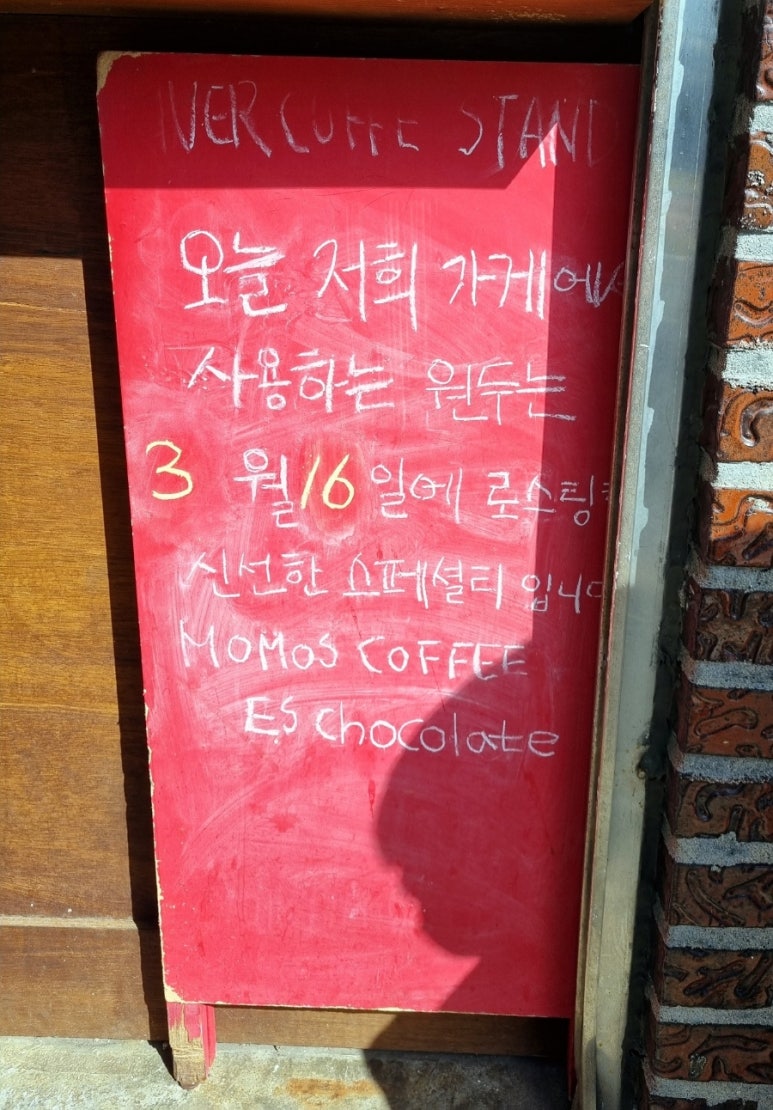 VER COFFE STAND
오늘 저희 가게에서
사용하는 원두는
3월 16일에 로스팅한
신선한 스페셜티 입니다
MOMOS COFFEE
ES chocolate